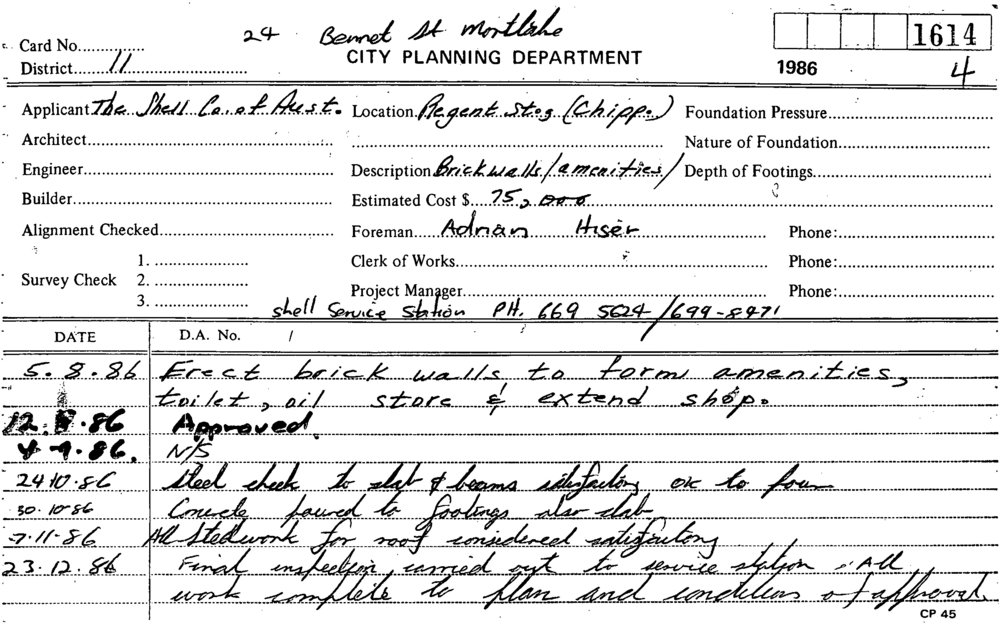 24 Bennet St Mortlake
Card No.
CITY PLANNING DEPARTMENT
1614
District 11
1986
4
Applicant The Shell Co. of Aust. Location Regent St 09 (Chipp.) Foundation Pressure
Architect Nature of Foundation
Engineer Description Brick walls/amenities/ Depth of Footings
Builder Estimated Cost $ 75,000
Alignment Checked Foreman Adrian Hiser Phone:
1.
Clerk of Works Phone:
Survey Check 2.
Project Manager Phone:
3.
Shell Service Station PH. 669 5624/699-8471
DATE D.A. No. /
5.8.86 Erect brick walls to form amenities,
toilet, oil store & extend shop.
12.8.86 Approved.
4.9.86. N/S
24.10.86 Steel check to slab & beams satisfactory OK to pour
30.10.86 Concrete poured to footings also slab
7.11.86 All Steelwork for roof considered satisfactory
23.12.86 Final inspection carried out to service station. All
work complete to plan and conditions of approval.
CP 45